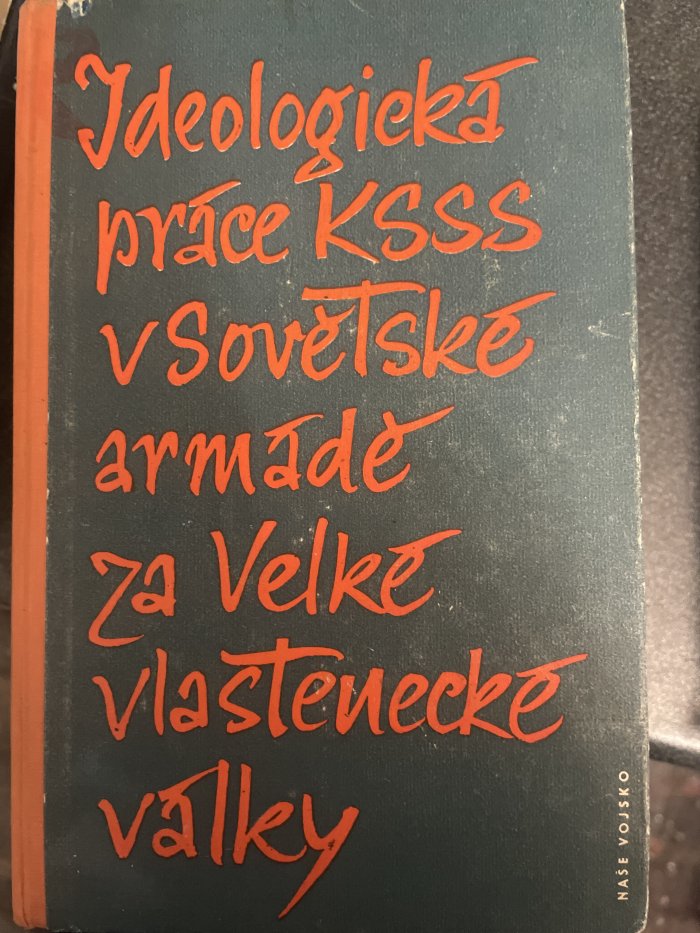 Ideologická
práce KSSS
v Sovětské
armádě
za Velké
vlastenecké
války
NAŠE VOJSKO